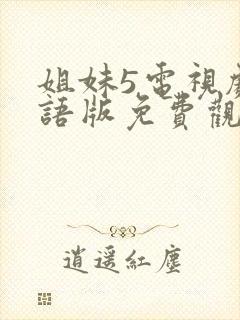 姐妹5電視
語版免費觀
逍遥紅塵